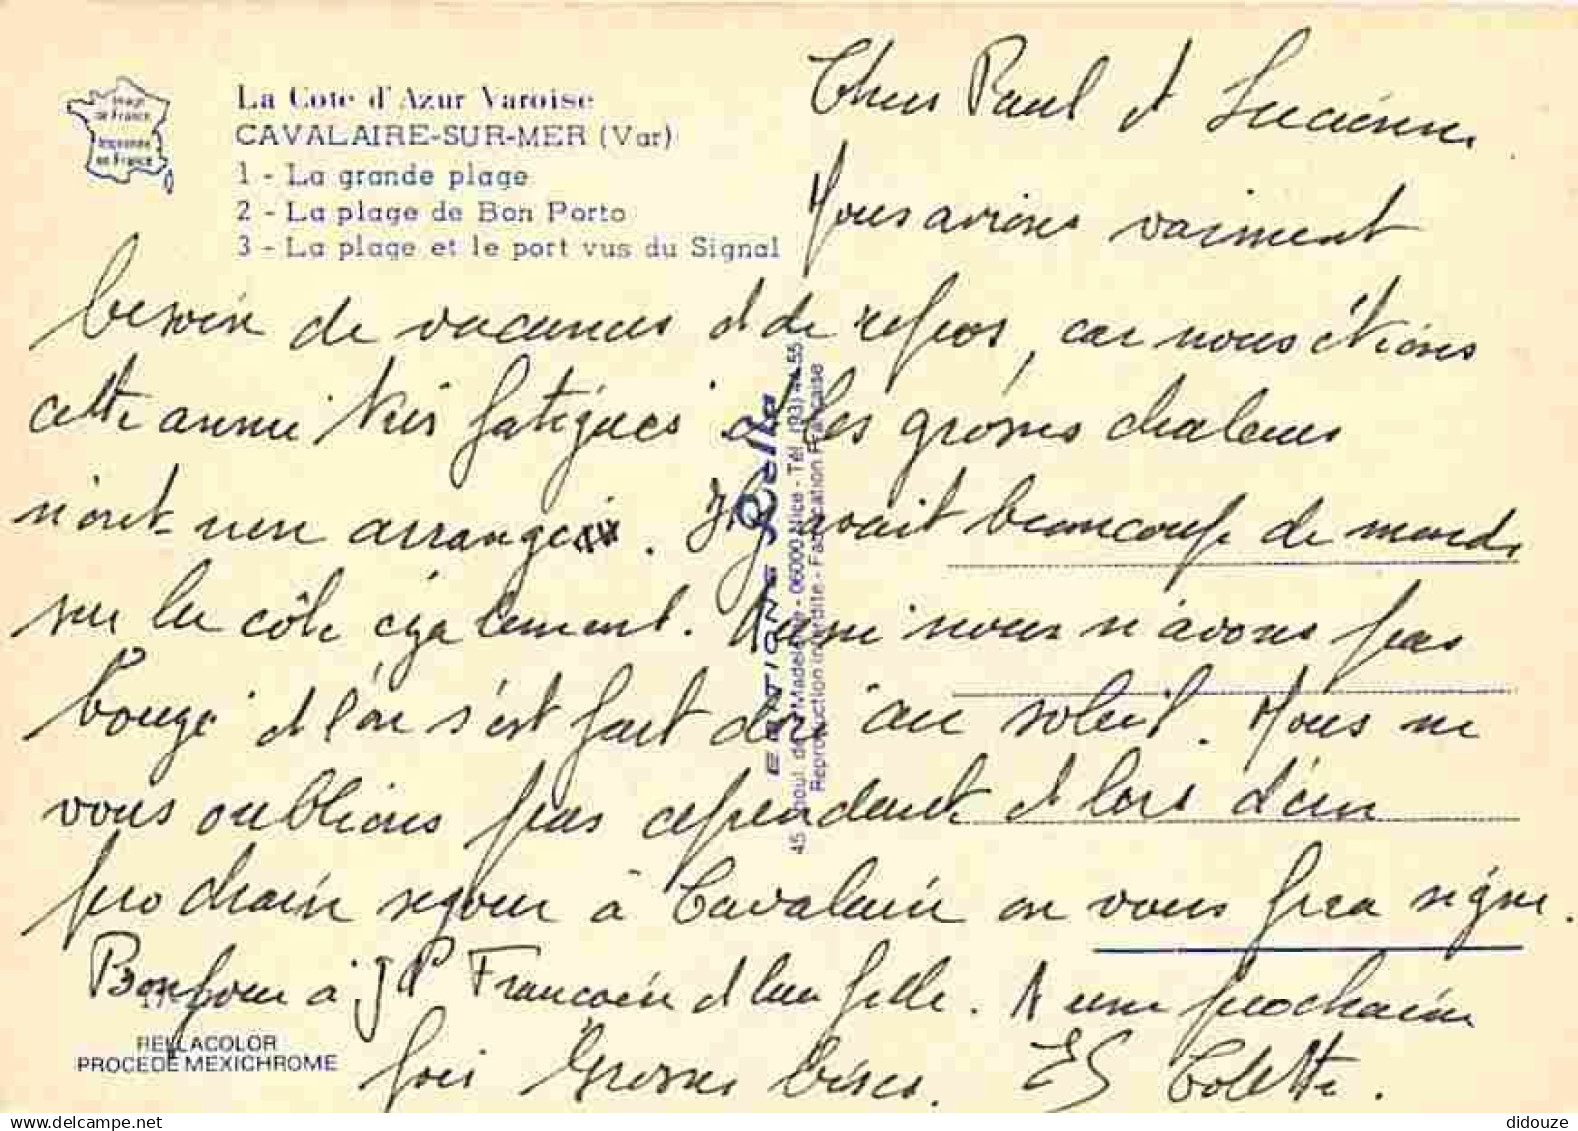 Image
de France
Imprimée
en France
La Cote d'Azur Varoise
CAVALAIRE-SUR-MER (Var)
1 - La grande plage
2 - La plage de Bon Porto
3 - La plage et le port vus du Signal
Chers Paul et Lucienne.
Nous avions vraiment
besoin de vacances et de repos, car nous étions
cette année très fatigués et les grosses chaleurs
n'ont rien arrangé. Il y avait beaucoup de monde
sur la côte également. Aussi nous n'avons pas
bougé et l'on s'est fait doré au soleil. Nous ne
vous oublions pas cependant et lors d'un
prochain séjour à Cavalaire on vous fera signe.
Bonjour à J P Françoise et leur fille. A une prochaine
fois Grosses bises. Colette.
EDITIONS Rella
45 boul. de la Madeleine - 06000 Nice - Tél. (93) 44.55
Reproduction interdite - Fabrication Française
RELLACOLOR
PROCEDE MEXICHROME
didouze